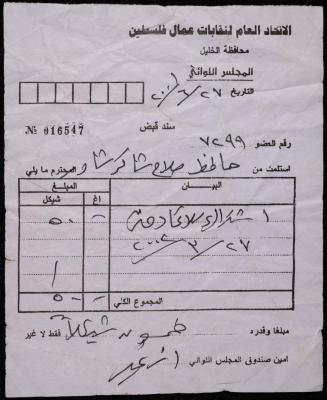 الاتحاد العام لنقابات عمال فلسطين
محافظة الخليل
المجلس اللوائي
التاريخ ٢٧ / ٦ /
سند قبض
№ 016547
رقم العضو ٧٢٩٩
استلمت من حافظ صلاح شاكر المحترم ما يلي
البيان
المبلغ
اغ شيكل
اشتراك لغاية
- ٥٠
٢٧ / ٣ / ٢٠٠٢
المجموع الكلي - ٥٠
مبلغا وقدره خمسون شيكل فقط لا غير
امين صندوق المجلس اللوائي